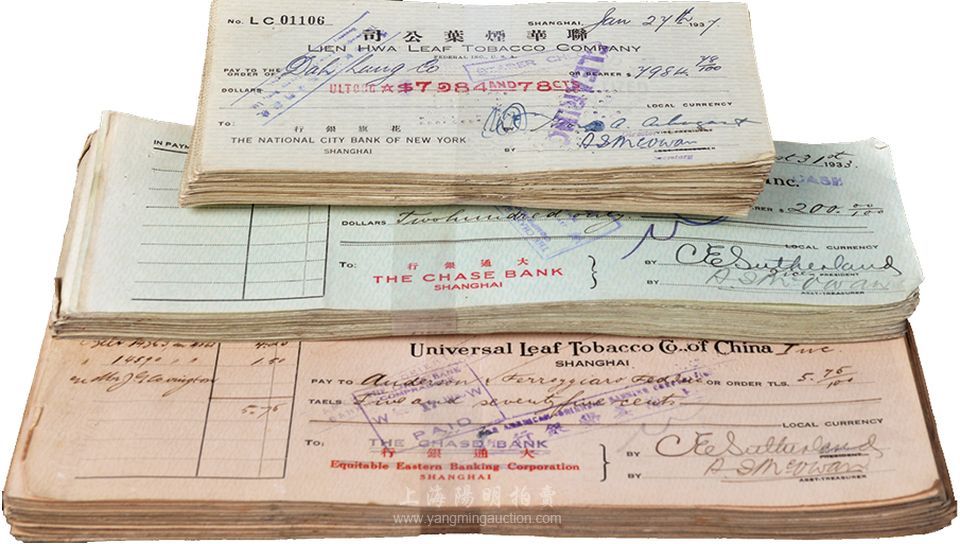 No. LC 01106
SHANGHAI, Jan 27th 1937
司公葉煙華聯
LIEN HWA LEAF TOBACCO COMPANY
FEDERAL INC., U.S.A.
PAY TO THE ORDER OF Dah Lung Co OR BEARER $ 7984. 78/100
BEARER CHEQUE
CLEARING
DOLLARS ULTOOO $7984 AND 78 CTS
LOCAL CURRENCY
TO: 行銀旗花
THE NATIONAL CITY BANK OF NEW YORK
SHANGHAI
BY
A S McOwan
IN PAYM
31st 1933
Inc.
DOLLARS Two hundred only. $ 200. 00/100
LOCAL CURRENCY
TO: 行銀通大
THE CHASE BANK
SHANGHAI
BY C E Sutherland
Vice PRESIDENT
BY A. S. McOwan
ASST-TREASURER
Universal Leaf Tobacco Co., of China Inc
SHANGHAI.
PAY TO Anderson & Ferroggiaro Federal OR ORDER TLS. 5. 75/100
TAELS Five and seventy five cents
5.75
PAID
LOCAL CURRENCY
TO: THE CHASE BANK
行銀通大
Equitable Eastern Banking Corporation
SHANGHAI
BY C E Sutherland
PRESIDENT
BY A S McOwan
ASST-TREASURER
上海陽明拍賣
www.yangmingauction.com